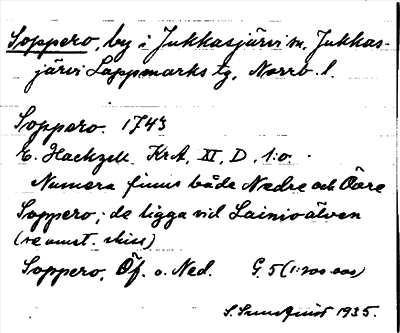 Soppero, by i Jukkasjärvi sn, Jukkas-
järvi Lappmarks tg, Norrb. l.
Soppero. 1743
E. Hackzell. KrA, XI, D, 1:o.
Numera finns både Nedre och Övre
Soppero; de ligga vid Lainioälven
(se omst. skiss)
Soppero, Öf. o. Ned. G. 5 (1:200 000)
1935.